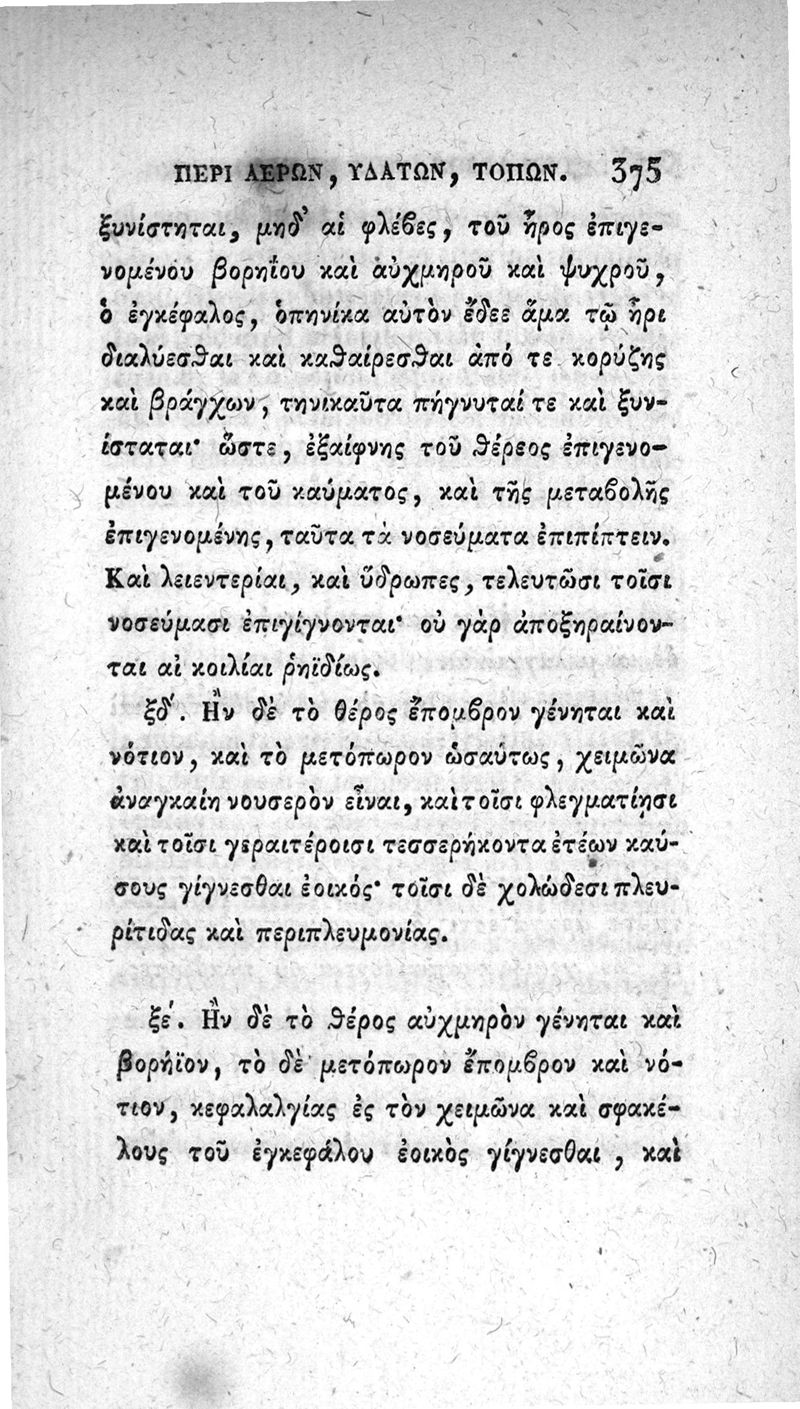 ΠΕΡΙ ΑΕΡΩΝ, ΥΔΑΤΩΝ, ΤΟΠΩΝ. 375
ξυνίστηται, μηδ᾽ αἱ φλέβες, τοῦ ἦρος ἐπιγε-
νομένου βορηΐου καὶ αὐχμηροῦ καὶ ψυχροῦ,
ὁ ἐγκέφαλος, ὁπηνίκα αὐτὸν ἔδεε ἅμα τῷ ἦρι
διαλύεσθαι καὶ καθαίρεσθαι ἀπό τε κορύζης
καὶ βράγχων, τηνικαῦτα πήγνυταί τε καὶ ξυν-
ίσταται· ὥστε, ἐξαίφνης τοῦ θέρεος ἐπιγενο-
μένου καὶ τοῦ καύματος, καὶ τῆς μεταβολῆς
ἐπιγενομένης, ταῦτα τὰ νοσεύματα ἐπιπίπτειν.
Καὶ λειεντερίαι, καὶ ὕδρωπες, τελευτῶσι τοῖσι
νοσεύμασι ἐπιγίγνονται· οὐ γὰρ ἀποξηραίνον-
ται αἱ κοιλίαι ῥηϊδίως.
ξδ΄. Ἢν δὲ τὸ θέρος ἔπομβρον γένηται καὶ
νότιον, καὶ τὸ μετόπωρον ὡσαύτως, χειμῶνα
ἀναγκαίη νουσερὸν εἶναι, καὶ τοῖσι φλεγματίῃσι
καὶ τοῖσι γεραιτέροισι τεσσερήκοντα ἐτέων καύ-
σους γίγνεσθαι ἐοικός· τοῖσι δὲ χολώδεσι πλευ-
ρίτιδας καὶ περιπλευμονίας.
ξέ. Ἢν δὲ τὸ θέρος αὐχμηρὸν γένηται καὶ
βορήϊον, τὸ δὲ μετόπωρον ἔπομβρον καὶ νό-
τιον, κεφαλαλγίας ἐς τὸν χειμῶνα καὶ σφακέ-
λους τοῦ ἐγκεφάλου ἐοικὸς γίγνεσθαι, καὶ